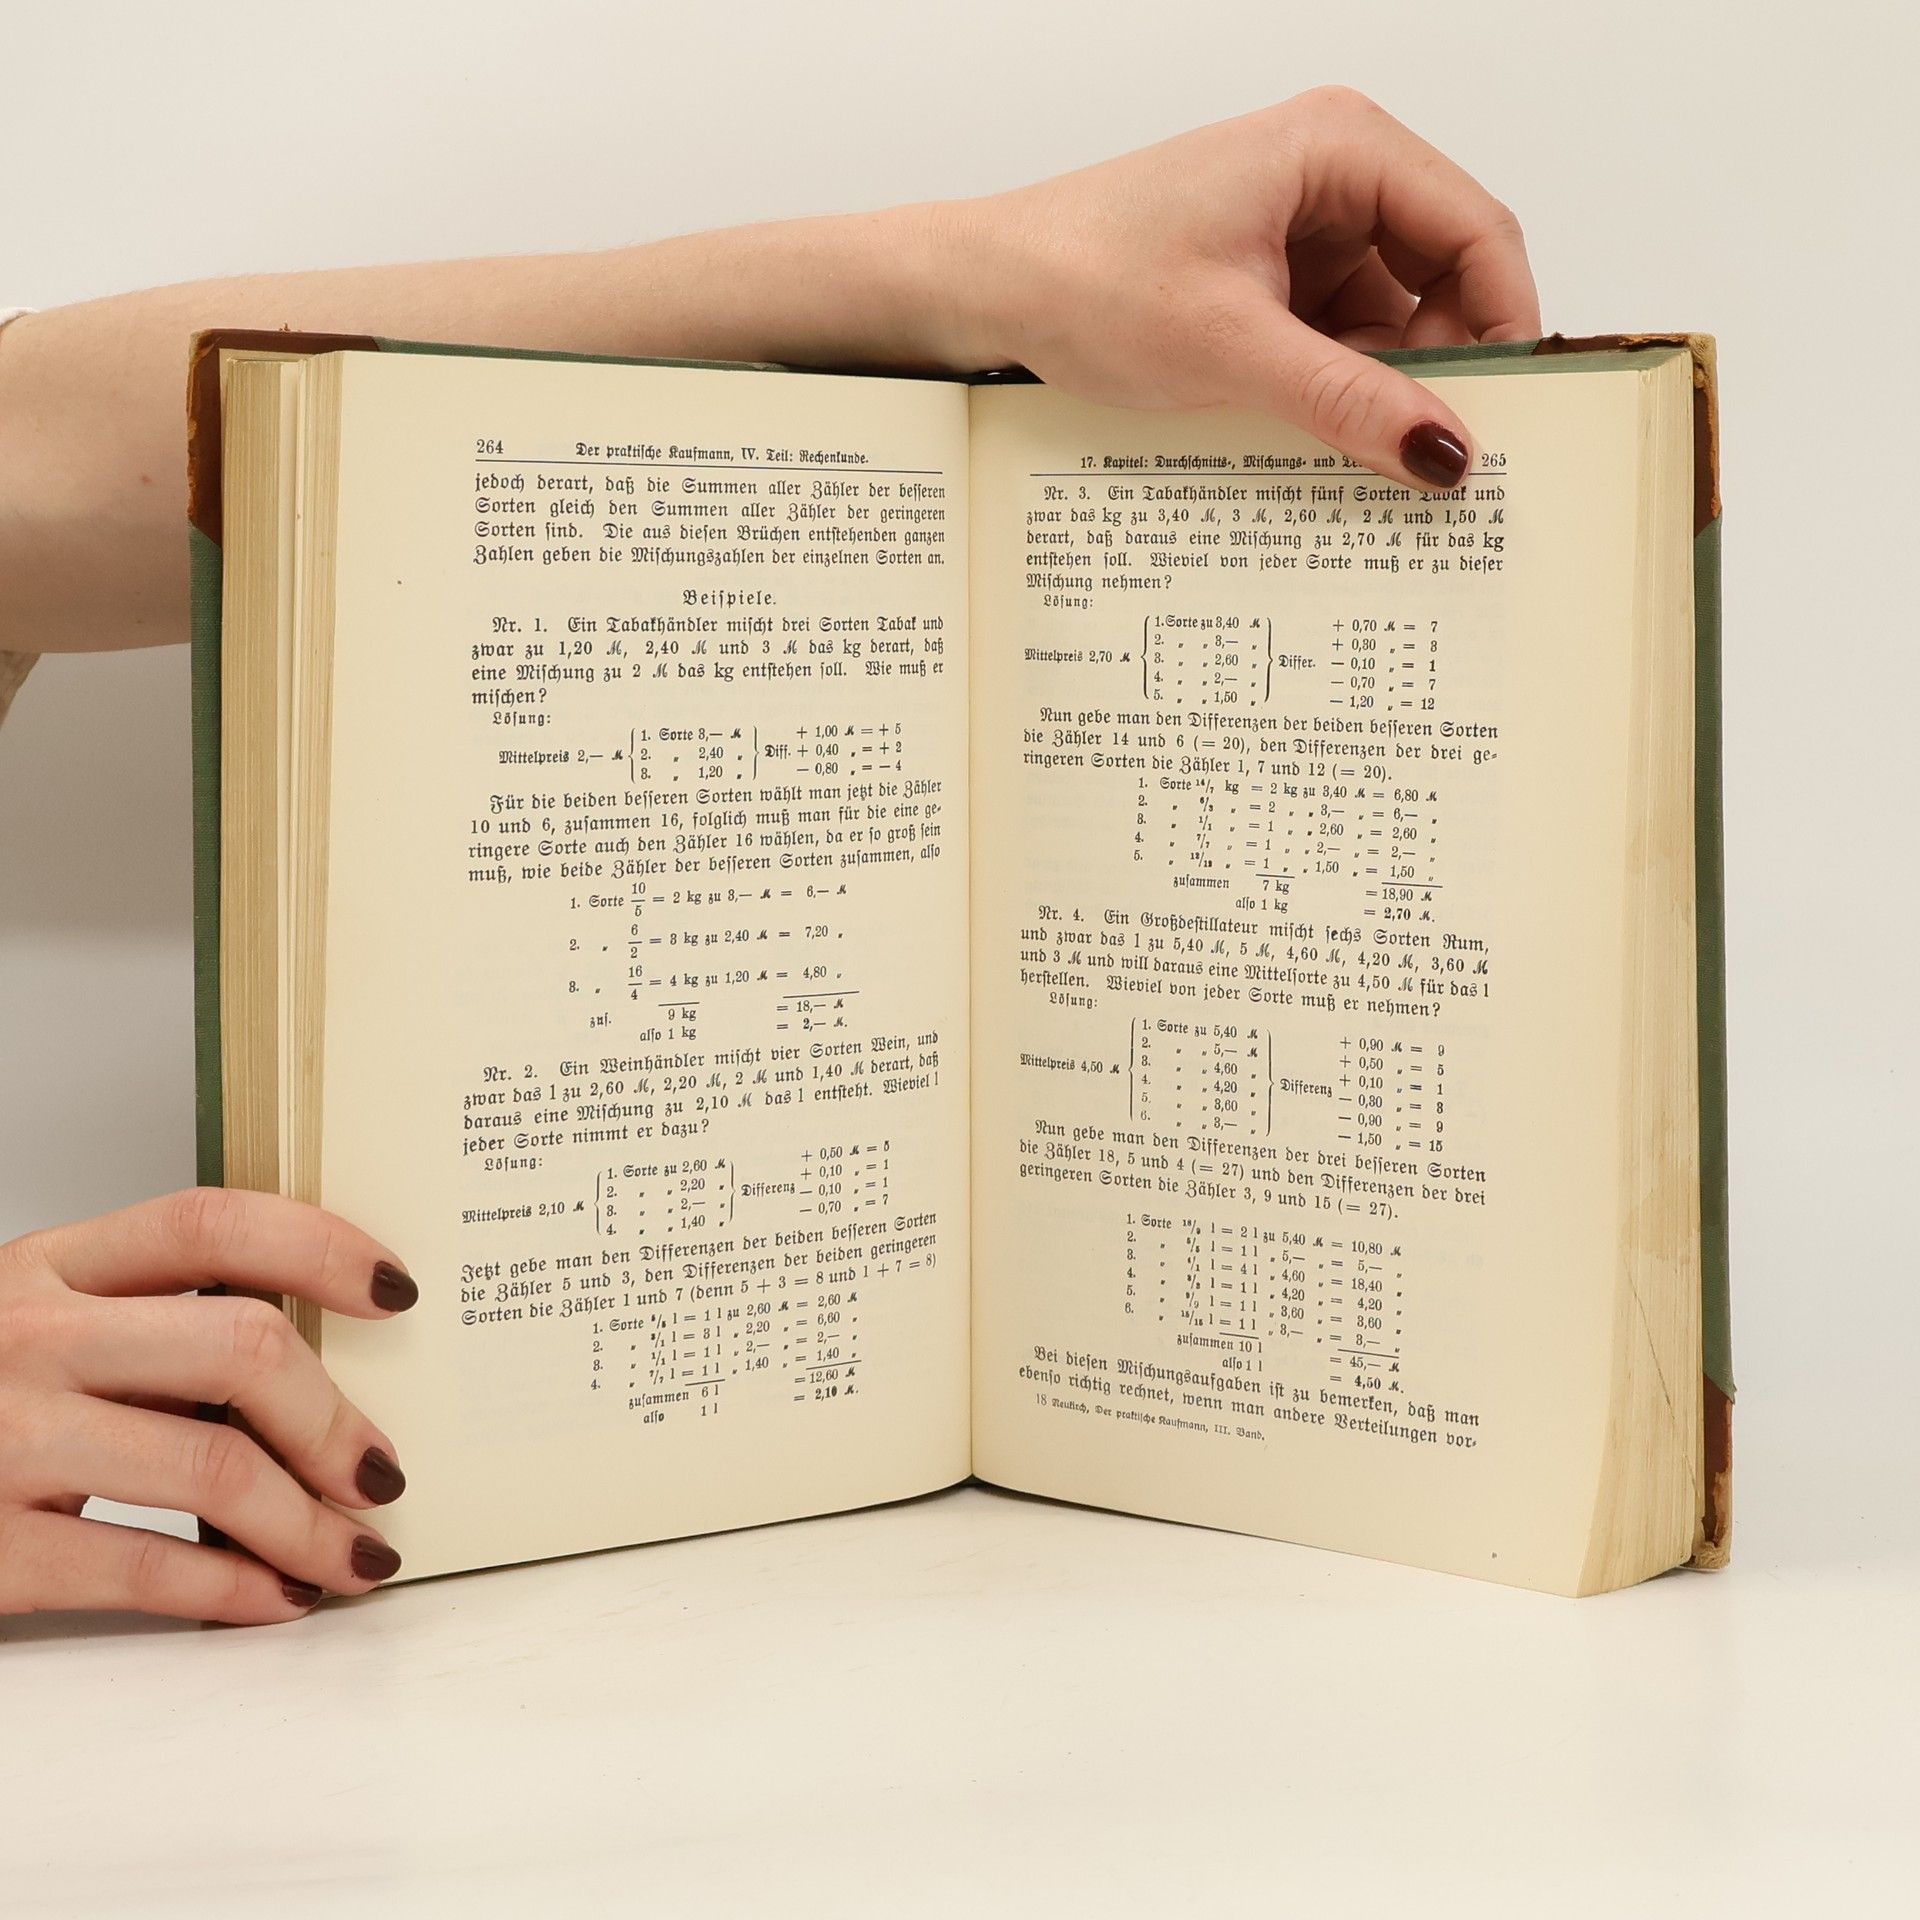 264 Der praktische Kaufmann, IV. Teil: Rechenkunde.
jedoch derart, daß die Summen aller Zähler der besseren
Sorten gleich den Summen aller Zähler der geringeren
Sorten sind. Die aus diesen Brüchen entstehenden ganzen
Zahlen geben die Mischungszahlen der einzelnen Sorten an.
Beispiele.
Nr. 1. Ein Tabakhändler mischt drei Sorten Tabak und
zwar zu 1,20 ℳ, 2,40 ℳ und 3 ℳ das kg derart, daß
eine Mischung zu 2 ℳ das kg entstehen soll. Wie muß er
mischen?
Lösung:
1. Sorte 3,— ℳ + 1,00 ℳ = + 5
Mittelpreis 2,— ℳ 2. „ 2,40 „ Diff. + 0,40 „ = + 2
3. „ 1,20 „ — 0,80 „ = — 4
Für die beiden besseren Sorten wählt man jetzt die Zähler
10 und 6, zusammen 16, folglich muß man für die eine ge-
ringere Sorte auch den Zähler 16 wählen, da er so groß sein
muß, wie beide Zähler der besseren Sorten zusammen, also
1. Sorte 10/5 = 2 kg zu 3,— ℳ = 6,— ℳ
2. „ 6/2 = 3 kg zu 2,40 ℳ = 7,20 „
3. „ 16/4 = 4 kg zu 1,20 ℳ = 4,80 „
zus. 9 kg = 18,— ℳ
also 1 kg = 2,— ℳ.
Nr. 2. Ein Weinhändler mischt vier Sorten Wein, und
zwar das l zu 2,60 ℳ, 2,20 ℳ, 2 ℳ und 1,40 ℳ derart, daß
daraus eine Mischung zu 2,10 ℳ das l entsteht. Wieviel l
jeder Sorte nimmt er dazu?
Lösung:
1. Sorte zu 2,60 ℳ + 0,50 ℳ = 5
2. „ „ 2,20 „ + 0,10 „ = 1
Mittelpreis 2,10 ℳ 3. „ „ 2,— „ Differenz — 0,10 „ = 1
4. „ „ 1,40 „ — 0,70 „ = 7
Jetzt gebe man den Differenzen der beiden besseren Sorten
die Zähler 5 und 3, den Differenzen der beiden geringeren
Sorten die Zähler 1 und 7 (denn 5 + 3 = 8 und 1 + 7 = 8)
1. Sorte 5/5 l = 1 l zu 2,60 ℳ = 2,60 ℳ
2. „ 3/1 l = 3 l „ 2,20 „ = 6,60 „
3. „ 1/1 l = 1 l „ 2,— „ = 2,— „
4. „ 7/7 l = 1 l „ 1,40 „ = 1,40 „
zusammen 6 l = 12,60 ℳ
also 1 l = 2,10 ℳ.
17. Kapitel: Durchschnitts-, Mischungs- und 265
Nr. 3. Ein Tabakhändler mischt fünf Sorten Tabak und
zwar das kg zu 3,40 ℳ, 3 ℳ, 2,60 ℳ, 2 ℳ und 1,50 ℳ
derart, daß daraus eine Mischung zu 2,70 ℳ für das kg
entstehen soll. Wieviel von jeder Sorte muß er zu dieser
Mischung nehmen?
Lösung:
1. Sorte zu 3,40 ℳ + 0,70 ℳ = 7
2. „ „ 3,— „ + 0,30 „ = 3
Mittelpreis 2,70 ℳ 3. „ „ 2,60 „ Differ. — 0,10 „ = 1
4. „ „ 2,— „ — 0,70 „ = 7
5. „ „ 1,50 „ — 1,20 „ = 12
Nun gebe man den Differenzen der beiden besseren Sorten
die Zähler 14 und 6 (= 20), den Differenzen der drei ge-
ringeren Sorten die Zähler 1, 7 und 12 (= 20).
1. Sorte 14/7 kg = 2 kg zu 3,40 ℳ = 6,80 ℳ
2. „ 6/3 „ = 2 „ „ 3,— „ = 6,— „
3. „ 1/1 „ = 1 „ „ 2,60 „ = 2,60 „
4. „ 7/7 „ = 1 „ „ 2,— „ = 2,— „
5. „ 12/12 „ = 1 „ „ 1,50 „ = 1,50 „
zusammen 7 kg = 18,90 ℳ
also 1 kg = 2,70 ℳ.
Nr. 4. Ein Großdestillateur mischt sechs Sorten Rum,
und zwar das l zu 5,40 ℳ, 5 ℳ, 4,60 ℳ, 4,20 ℳ, 3,60 ℳ
und 3 ℳ und will daraus eine Mittelsorte zu 4,50 ℳ für das l
herstellen. Wieviel von jeder Sorte muß er nehmen?
Lösung:
1. Sorte zu 5,40 ℳ + 0,90 ℳ = 9
2. „ „ 5,— ℳ + 0,50 „ = 5
Mittelpreis 4,50 ℳ 3. „ „ 4,60 „ + 0,10 „ = 1
4. „ „ 4,20 „ Differenz — 0,30 „ = 3
5. „ „ 3,60 „ — 0,90 „ = 9
6. „ „ 3,— „ — 1,50 „ = 15
Nun gebe man den Differenzen der drei besseren Sorten
die Zähler 18, 5 und 4 (= 27) und den Differenzen der drei
geringeren Sorten die Zähler 3, 9 und 15 (= 27).
1. Sorte 18/9 l = 2 l zu 5,40 ℳ = 10,80 ℳ
2. „ 5/5 l = 1 l „ 5,— „ = 5,— „
3. „ 4/1 l = 4 l „ 4,60 „ = 18,40 „
4. „ 3/3 l = 1 l „ 4,20 „ = 4,20 „
5. „ 9/9 l = 1 l „ 3,60 „ = 3,60 „
6. „ 15/15 l = 1 l „ 3,— „ = 3,— „
zusammen 10 l = 45,— ℳ
also 1 l = 4,50 ℳ.
Bei diesen Mischungsaufgaben ist zu bemerken, daß man
ebenso richtig rechnet, wenn man andere Verteilungen vor-
18 Neukirch, Der praktische Kaufmann, III. Band.